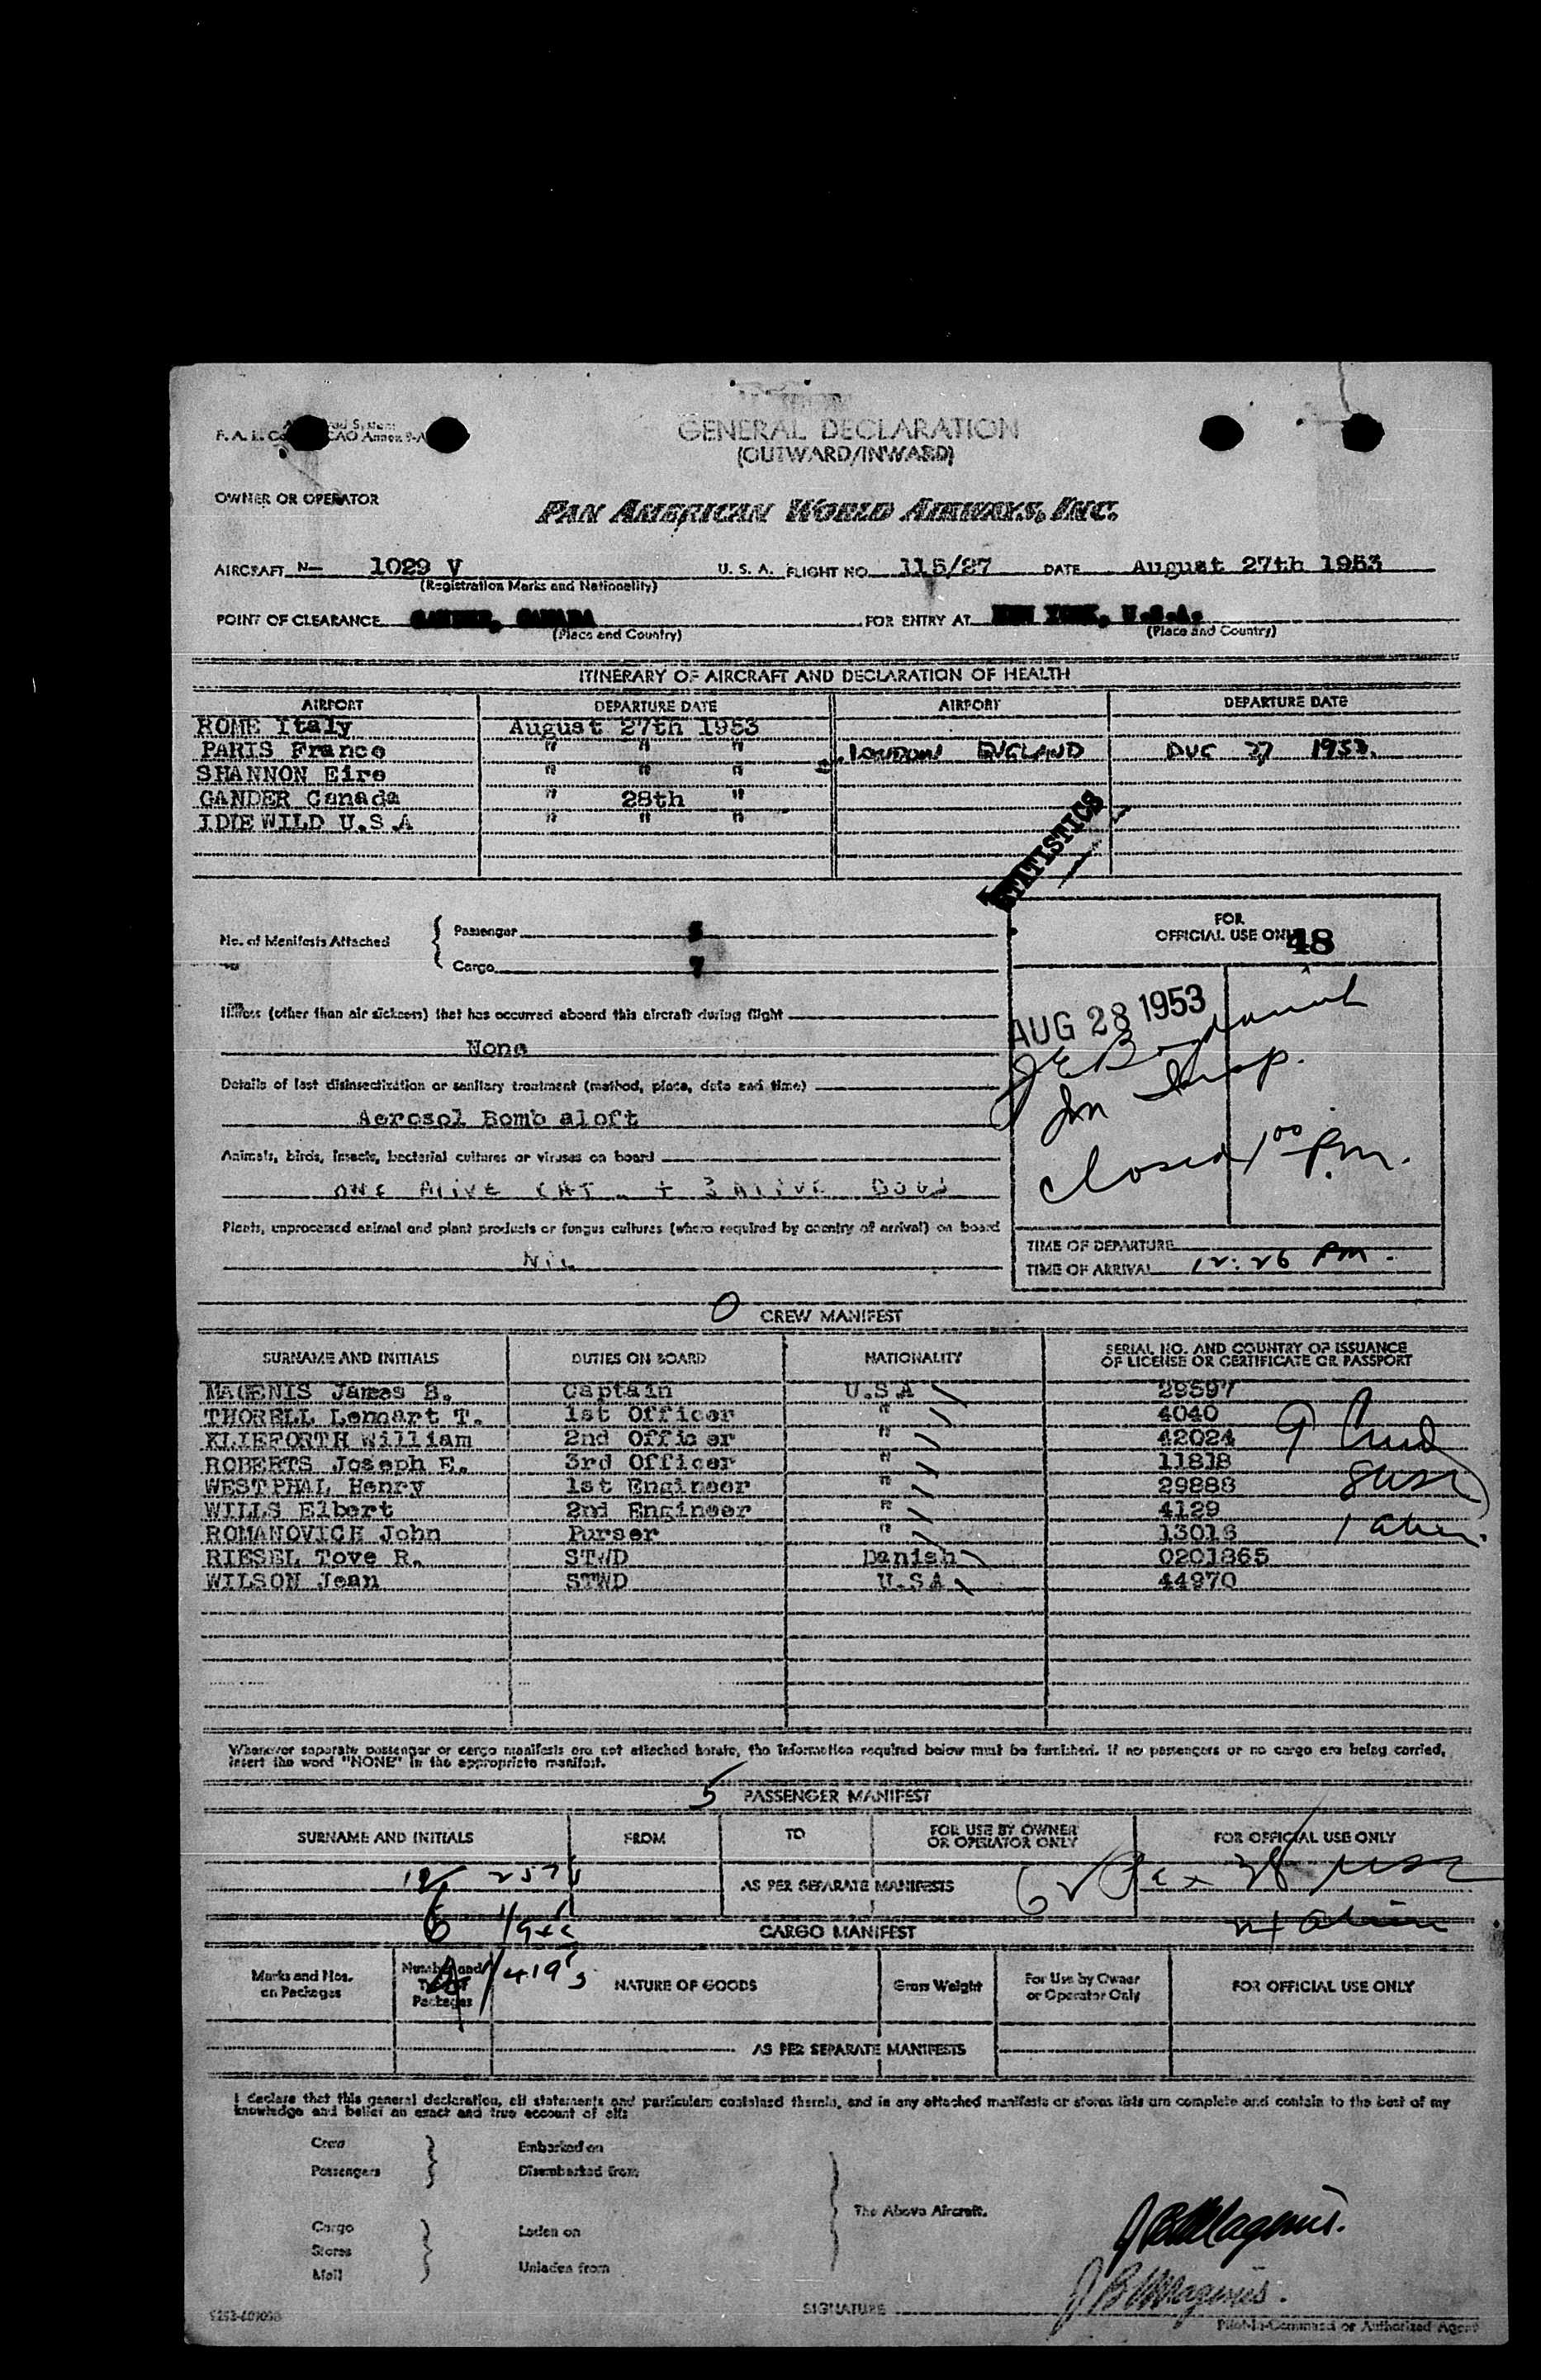 GENERAL DECLARATION
(OUTWARD/INWARD)
OWNER OR OPERATOR
PAN AMERICAN WORLD AIRWAYS, INC.
AIRCRAFT N- 1029 V U. S. A. FLIGHT NO. 115/27 DATE August 27th 1953
(Registration Marks and Nationality)
POINT OF CLEARANCE GANDER, CANADA FOR ENTRY AT NEW YORK, U.S.A.
(Place and Country) (Place and Country)
ITINERARY OF AIRCRAFT AND DECLARATION OF HEALTH
AIRPORT DEPARTURE DATE AIRPORT DEPARTURE DATE
ROME Italy August 27th 1953
PARIS France " " " LONDON ENGLAND 27 1953.
SHANNON Eire " " "
GANDER Canada " 28th "
IDIEWILD U.S.A " " "
STATISTICS
No. of Manifests Attached
Passenger 5
Cargo 7
FOR
OFFICIAL USE ONLY 48
Illness (other than air sickness) that has occurred aboard this aircraft during flight
None
AUG 28 1953
Details of last disinsectization or sanitary treatment (method, place, date and time)
Aerosol Bomb aloft
Im Insp.
Closed 1 00 P.m.
Animals, birds, insects, bacterial cultures or viruses on board
ONE ALIVE CAT + 3 ALIVE DOGS
Plants, unprocessed animal and plant products or fungus cultures (where required by country of arrival) on board
NIL
TIME OF DEPARTURE
TIME OF ARRIVAL 12:26 PM.
0 CREW MANIFEST
SURNAME AND INITIALS DUTIES ON BOARD NATIONALITY SERIAL NO. AND COUNTRY OF ISSUANCE
OF LICENSE OR CERTIFICATE OR PASSPORT
MAGENIS James B. Captain U.S.A 29597
THORELL Lennart T. 1st Officer " 4040
KLIEFORTH William 2nd Officer " 42024
ROBERTS Joseph E. 3rd Officer " 11818
WESTPHAL Henry 1st Engineer " 29888
WILLS Elbert 2nd Engineer " 4129
ROMANOVICH John Purser " 13016
RIESEL Tove R. STWD Danish 0201365
WILSON Jean STWD U.S.A 44970
9 Crew
8 USC
1 alien.
Whenever separate passenger or cargo manifests are not attached hereto, the information required below must be furnished. If no passengers or no cargo are being carried,
insert the word "NONE" in the appropriate manifest.
5 PASSENGER MANIFEST
SURNAME AND INITIALS FROM TO FOR USE BY OWNER
OR OPERATOR ONLY FOR OFFICIAL USE ONLY
AS PER SEPARATE MANIFESTS
CARGO MANIFEST
Marks and Nos.
on Packages Number and
Type of
Packages NATURE OF GOODS Gross Weight For Use by Owner
or Operator Only FOR OFFICIAL USE ONLY
AS PER SEPARATE MANIFESTS
I declare that this general declaration, all statements and particulars contained therein, and in any attached manifests or stores lists are complete and contain to the best of my
knowledge and belief an exact and true account of all:
Crew Embarked on
Passengers Disembarked from
The Above Aircraft.
Cargo Laden on
Stores
Mail Unladen from
J B Magenis.
J B Magenis.
SIGNATURE
Pilot-in-Command or Authorized Agent